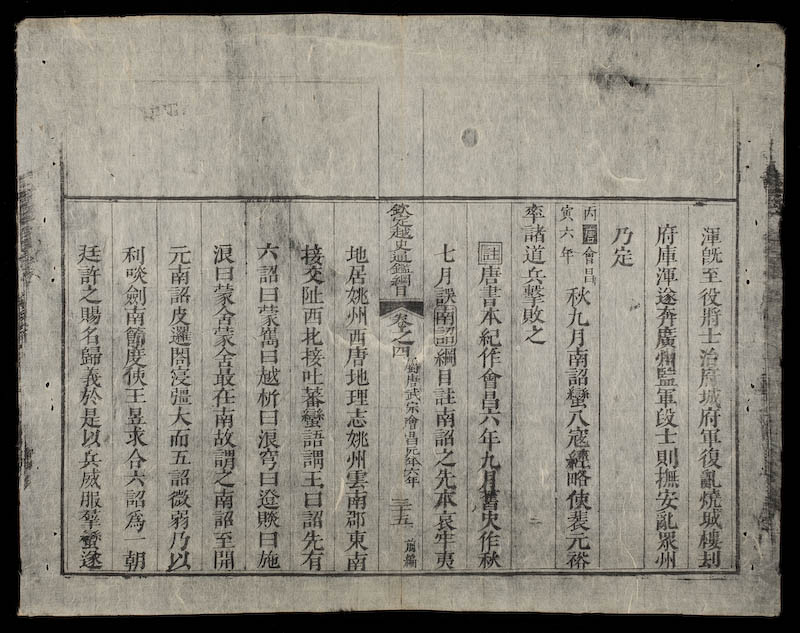 渾旣至役將士治府城府軍復亂燒城樓刼
府庫渾遂奔廣州監軍段士則撫安亂衆州
乃定
丙寅唐會昌六年秋九月南詔蠻入寇經略使裴元裕
率諸道兵擊敗之
註唐書本紀作會昌六年九月舊史作秋
七月誤南詔綱目註南詔之先本哀牢夷
欽定越史通鑑綱目 卷之四 唐武宗會昌元年六年 三十五 前編
地居姚州西唐地理志姚州雲南郡東南
接交阯西北接吐蕃蠻語謂王曰詔先有
六詔曰蒙雟曰越析曰浪穹曰邆賧曰施
浪曰蒙舍蒙舍最在南故謂之南詔至開
元南詔皮邏閣寖彊大而五詔微弱乃以
利啖劍南節度使王昱求合六詔爲一朝
廷許之賜名歸義於是以兵威服羣蠻遂